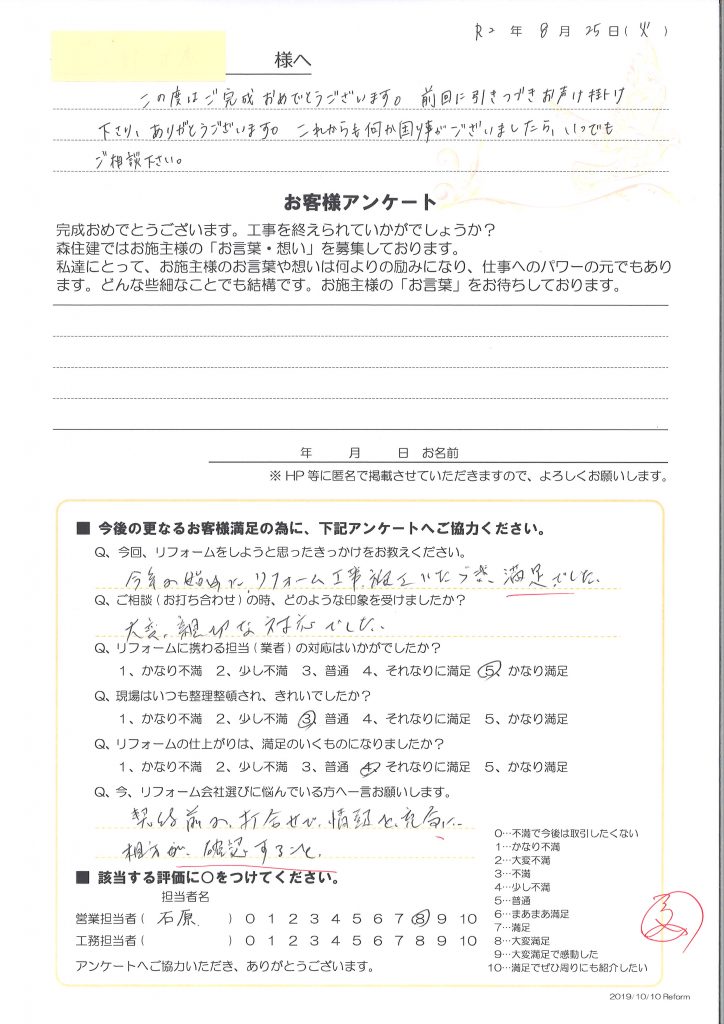 R2 年 8 月 25 日(火)
様へ
この度はご完成おめでとうございます。 前回に引きつづきお声け掛け
下さり、ありがとうございます。 これからも何か困り事がございましたら、いつでも
ご相談下さい。
お客様アンケート
完成おめでとうございます。工事を終えられていかがでしょうか？
森住建ではお施主様の「お言葉・想い」を募集しております。
私達にとって、お施主様のお言葉や想いは何よりの励みになり、仕事へのパワーの元でもあり
ます。どんな些細なことでも結構です。お施主様の「お言葉」をお待ちしております。
年 月 日 お名前
※ HP 等に匿名で掲載させていただきますので、よろしくお願いします。
■ 今後の更なるお客様満足の為に、下記アンケートへご協力ください。
Q、今回、リフォームをしようと思ったきっかけをお教えください。
今年の始めに、リフォーム工事 満足でした。
Q、ご相談(お打ち合わせ)の時、どのような印象を受けましたか？
大変、親切な対応でした。
Q、リフォームに携わる担当(業者)の対応はいかがでしたか？
1、かなり不満 2、少し不満 3、普通 4、それなりに満足 5、かなり満足
Q、現場はいつも整理整頓され、きれいでしたか？
1、かなり不満 2、少し不満 3、普通 4、それなりに満足 5、かなり満足
Q、リフォームの仕上がりは、満足のいくものになりましたか？
1、かなり不満 2、少し不満 3、普通 4、それなりに満足 5、かなり満足
Q、今、リフォーム会社選びに悩んでいる方へ一言お願いします。
契約前の、打合せで、情報を充分に
相方が、確認すること。
■ 該当する評価に〇をつけてください。
担当者名
営業担当者( 石原 ) 0 1 2 3 4 5 6 7 8 9 10
工務担当者( ) 0 1 2 3 4 5 6 7 8 9 10
アンケートへご協力いただき、ありがとうございます。
0…不満で今後は取引したくない
1…かなり不満
2…大変不満
3…不満
4…少し不満
5…普通
6…まあまあ満足
7…満足
8…大変満足
9…大変満足で感動した
10…満足でぜひ周りにも紹介したい
2019/10/10 Reform